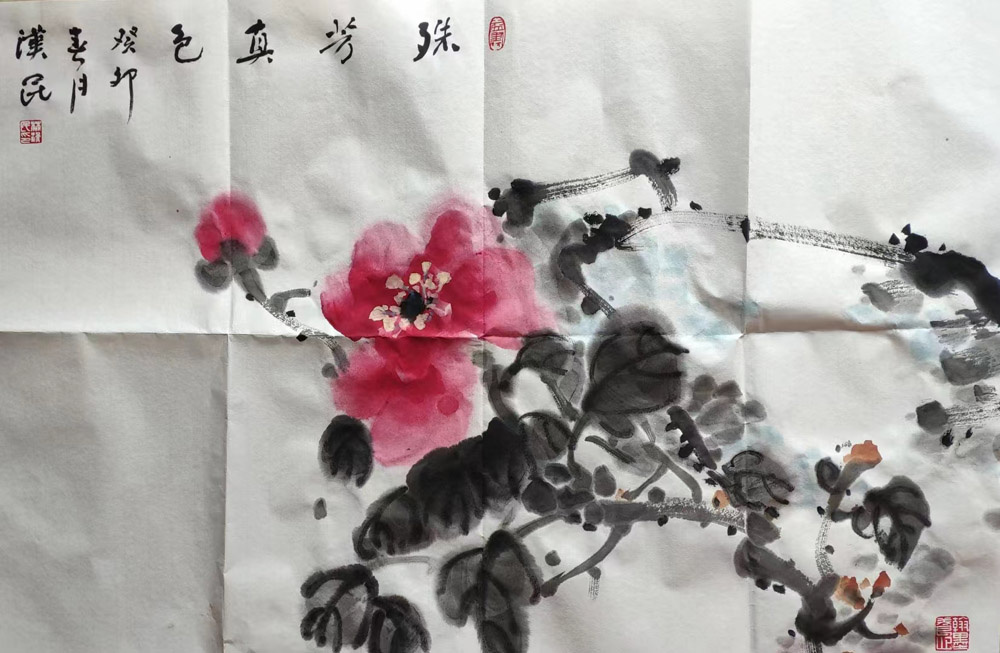 殊芳真色
癸卯
春月
漢民